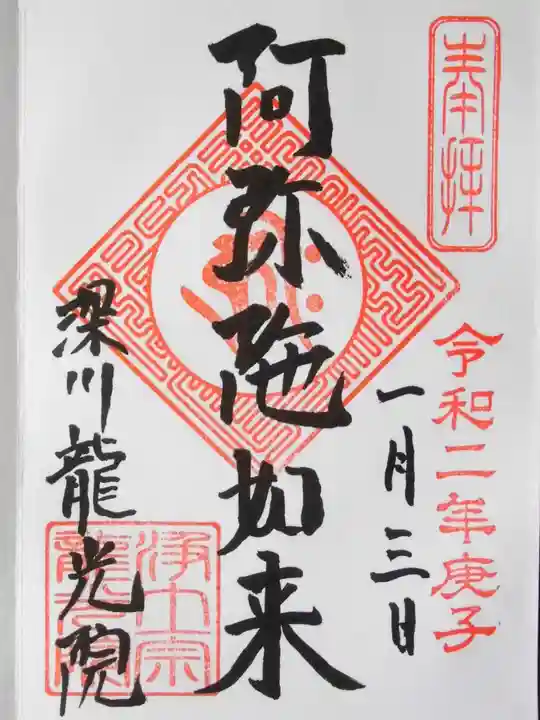 奉拝
令和二年庚子
一月三日
阿弥陀如来
深川龍光院
浄土宗
龍光院